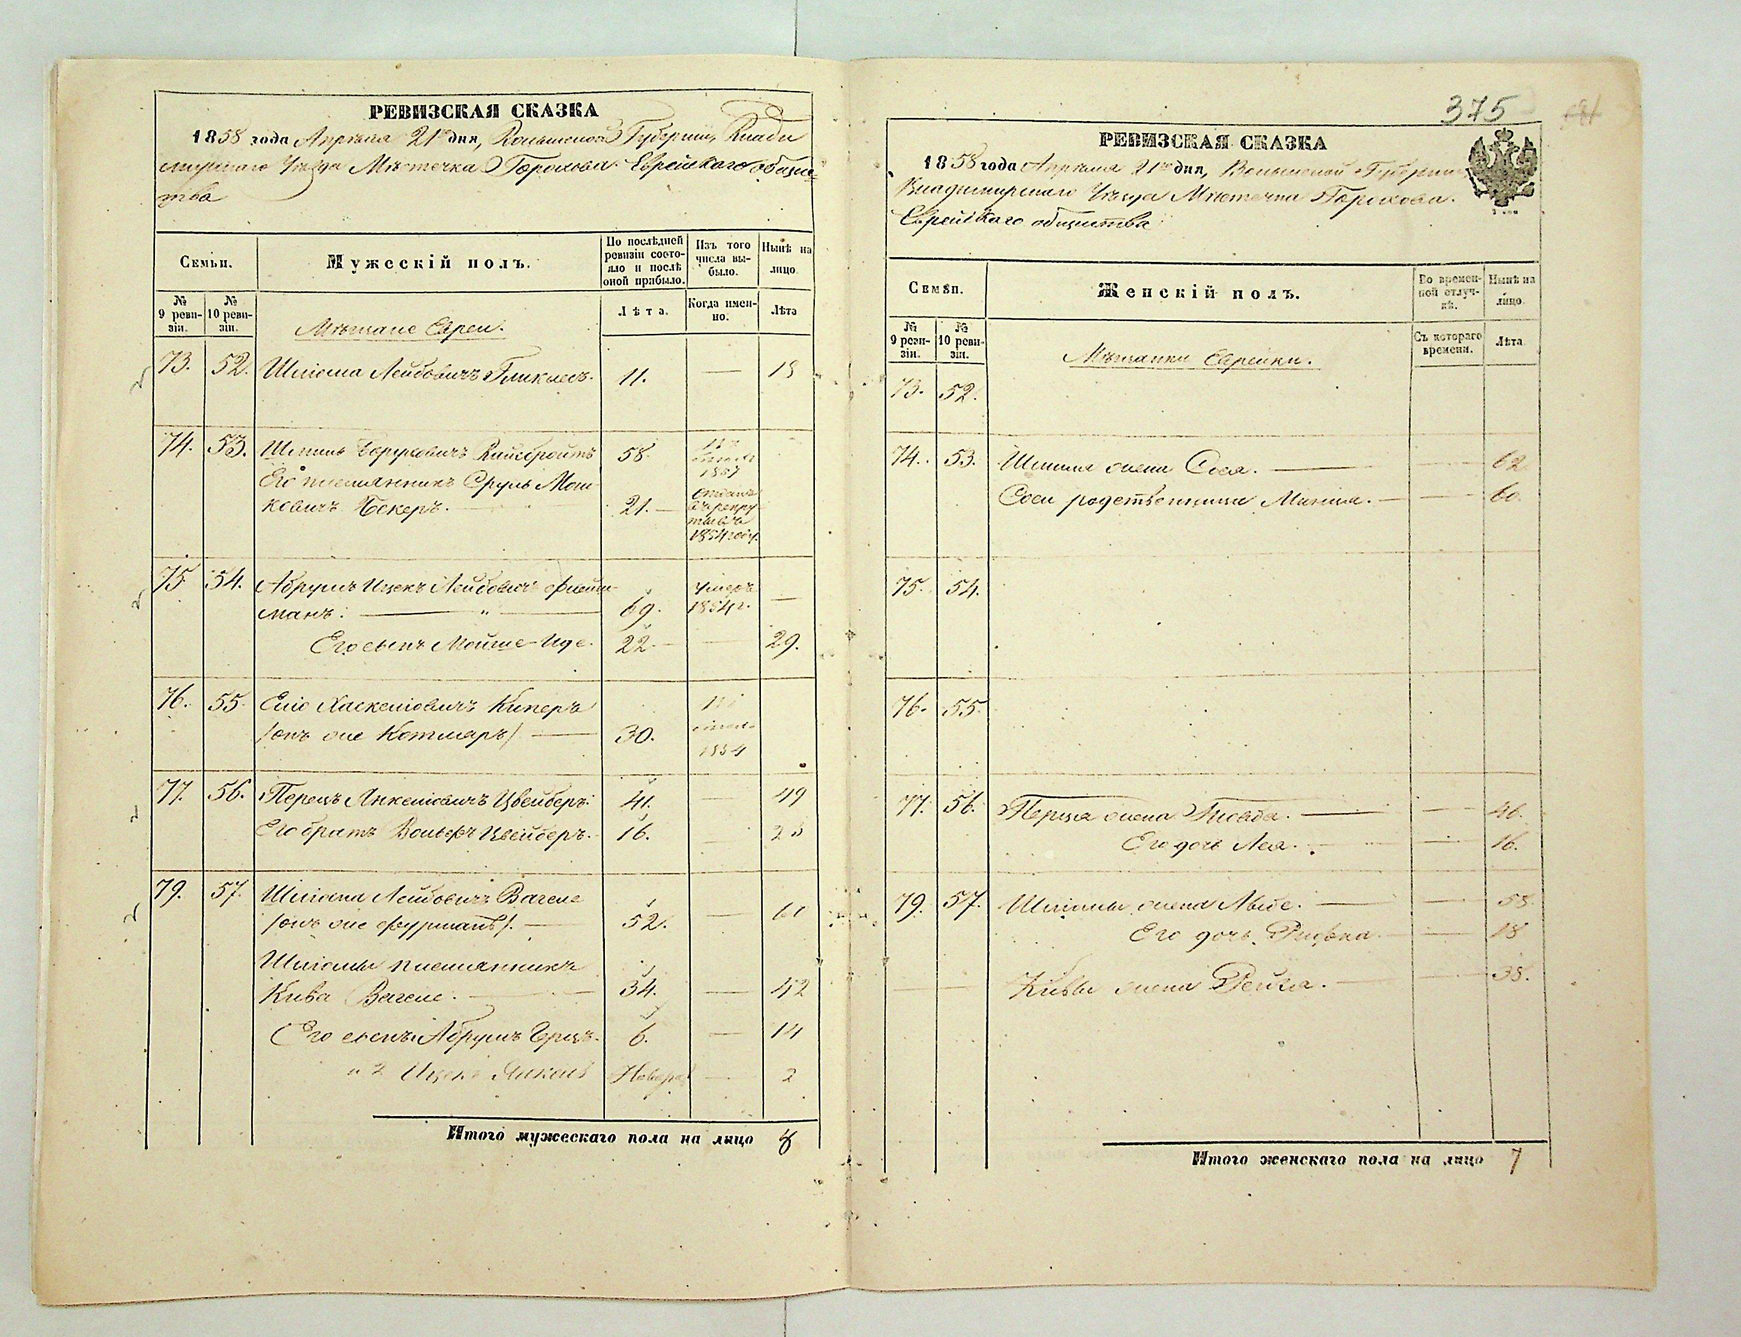 РЕВИЗСКАЯ СКАЗКА
1858 года Апрѣля 21го дня, Волынской Губерніи, Влади
мирскаго Уѣзда Мѣстечка Горохова Еврейскаго общес
тва
Семьи.
Мужескій полъ.
По послѣдней ревизіи состояло и послѣ оной прибыло.
Изъ того числа выбыло.
Нынѣ на лицо.
№ 9 ревизіи.
№ 10 ревизіи.
Мѣщане Евреи.
Лѣта.
Когда именно.
Лѣта
73. 52. Шліома Лейбовичъ 11. — 18
74. 53. Шмиль Берковичъ 58. 1857
Его племянникъ Сруль Мош
ковичъ Бекеръ. 21. — отданъ в рекруты въ 1854 году.
75 54. Абрумъ Ицекъ Лейбовичъ Флейш
манъ. — " — 69. умеръ 1854 г. —
Его сынъ Мойше-Иде. 22. — 29.
76. 55. Еліо Хаскеліовичъ Киперъ
/онъ же Котляръ/ — 30. 1854
77. 56. Перецъ Янкеліовичъ Цвейберъ. 41. — 49
Его братъ Вольфъ Цвейберъ. 16. 23
79. 57. Шліома Лейбовичъ Вагеле
/онъ же Фурманъ/. — 52. — 60
Шліомы племянникъ
Кива Вагеле. — 34. — 42
Его сынъ Абрумъ Герцъ. 6. — 14
" 2 Ицекъ Янкель Новорож — 2
Итого мужескаго пола на лицо 8
375
РЕВИЗСКАЯ СКАЗКА
1858 года Апрѣля 21го дня, Волынской Губерніи
Владимирскаго Уѣзда Мѣстечка Горохова.
Еврейскаго общества
Семьи.
Женскій полъ.
Во временной отлучкѣ.
Нынѣ на лицо.
№ 9 ревизіи.
№ 10 ревизіи.
Мѣщанки Еврейки.
Съ котораго времени.
Лѣта
73. 52.
74. 53. Шмиля жена Сося. — 62
Соси родственница Минця. — 60.
75. 54.
76. 55.
77. 56. Перца жена — 46.
Его дочь Лея. — 16.
79. 57. Шліомы жена — 58.
Его дочь Ривка. — 18
Кивы жена Рейзя. — 38.
Итого женскаго пола на лицо 7